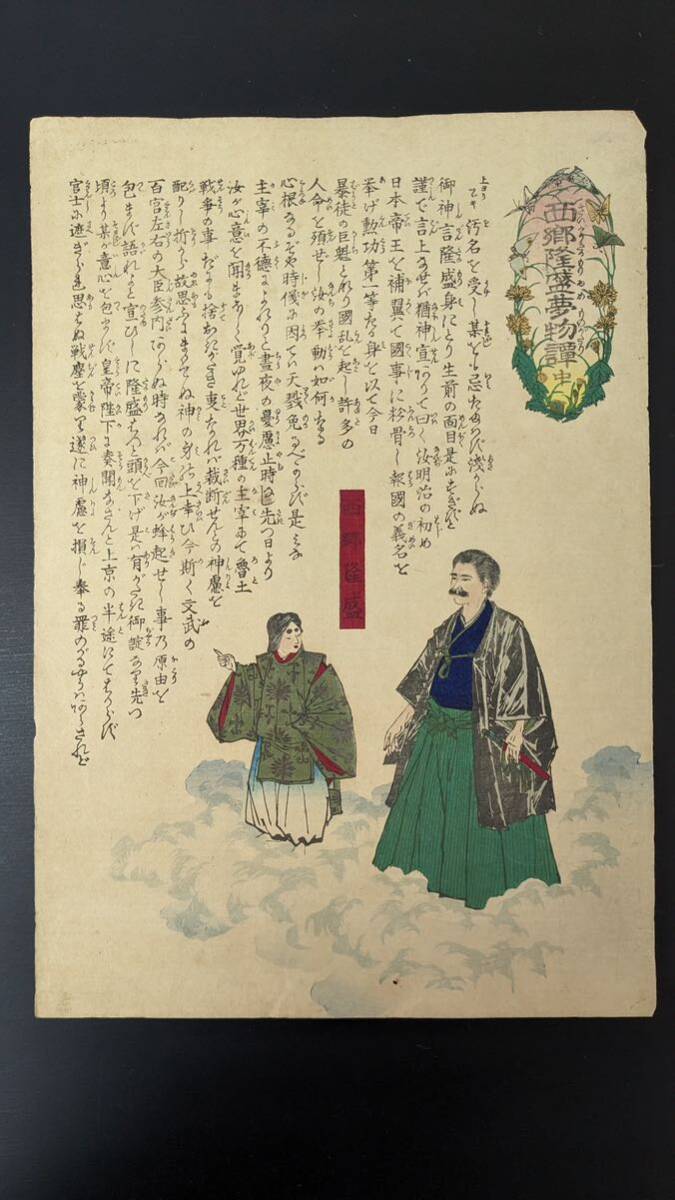 西郷隆盛夢物譚 中
さいがうたかもりゆめものがたり
上ヨリツヾキ 汚名を受し某をも忌たまはず淺からぬ
御神言隆盛身にとり生前の面目是にすぎずと
謹で言上なせバ猶神宣ありて曰く汝明治の初め
日本帝王を補翼て國事に粉骨し報國の義名を
挙げ勲功第一等たる身を以て今日
暴徒の巨魁となり國乱を起し許多の
人命を殞せし汝の挙動ハ如何なる
心根なるぞや時儀に因てハ天戮免るべからず是みな
主宰の不徳によれりと晝夜の憂慮止時なく先つ日より
汝が心意を聞まほしく覚ゆれど世界万種の主宰にて魯土
戦争の事だにも捨おきがたき東なれバ裁断せんとの神慮を
配りし折から故思ふにまかせぬ神の身の上幸ひ今斯く文武の
百官左右の大臣参内あらぬ時なれバ今回汝が蜂起せし事乃原由を
包まず語れよと宣ひしに隆盛はつと頭を下げ是ハ有がたき御諚なり先つ
頃より某が意心を包まず皇帝陛下に奏聞なさんと上京の半途にてはからず
官士に遮ぎられ思はぬ戦塵を蒙り遂に神慮を損じ奉る罪のがるゝ所ハあらざれど
西郷隆盛